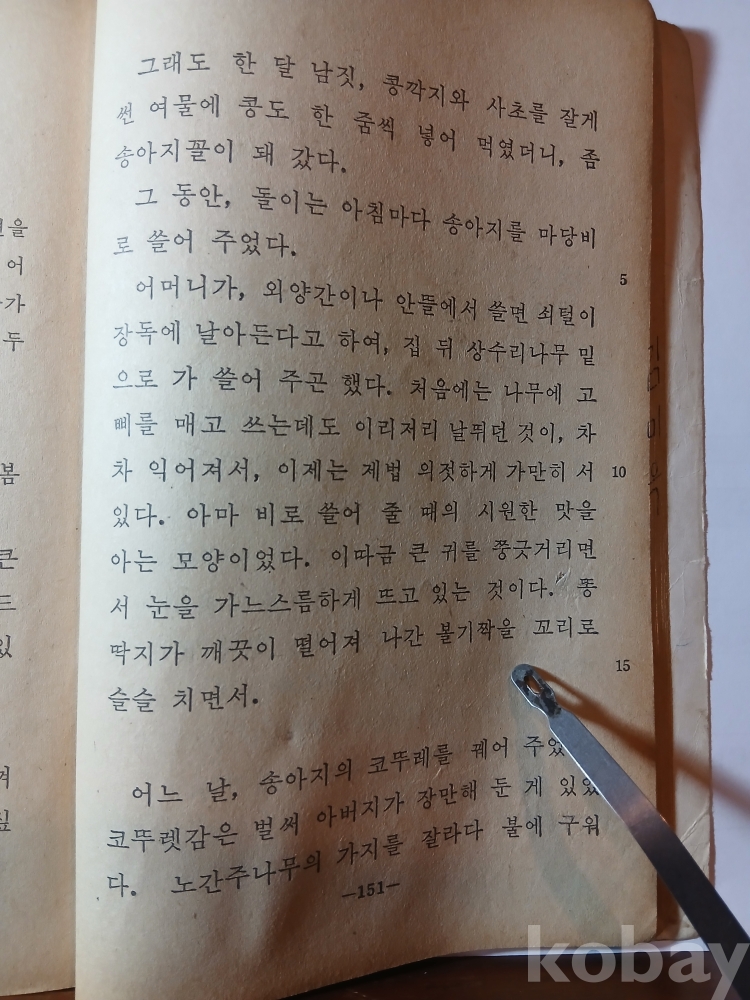 그래도 한 달 남짓, 콩깍지와 사초를 잘게
썬 여물에 콩도 한 줌씩 넣어 먹였더니, 좀
송아지꼴이 돼 갔다.
그 동안, 돌이는 아침마다 송아지를 마당비
로 쓸어 주었다.
5
어머니가, 외양간이나 안뜰에서 쓸면 쇠털이
장독에 날아든다고 하여, 집 뒤 상수리나무 밑
으로 가 쓸어 주곤 했다. 처음에는 나무에 고
삐를 매고 쓰는데도 이리저리 날뛰던 것이, 차
차 익어져서, 이제는 제법 의젓하게 가만히 서 10
있다. 아마 비로 쓸어 줄 때의 시원한 맛을
아는 모양이었다. 이따금 큰 귀를 쭝긋거리면
서 눈을 가느스름하게 뜨고 있는 것이다. 똥
딱지가 깨끗이 떨어져 나간 볼기짝을 꼬리로
15
슬슬 치면서.
어느 날, 송아지의 코뚜레를 꿰어 주었
코뚜렛감은 벌써 아버지가 장만해 둔 게 있었
다. 노간주나무의 가지를 잘라다 불에 구워
—151—
을
어
가
두
봄
큰
드
있
겨
짚
kobay